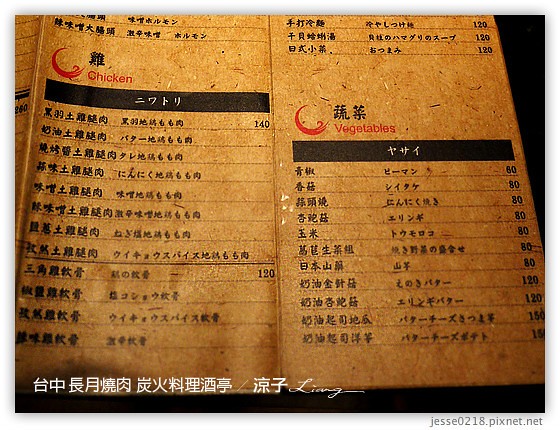 辣味噌大腸頭 激辛味噌 ホルモン
雞
Chicken
ニワトリ
黑羽土雞腿肉 黒羽地鶏もも肉 140
奶油土雞腿肉 バター地鶏もも肉
燒烤醬土雞腿肉 タレ地鶏もも肉
蒜味土雞腿肉 にんにく地鶏もも肉
味噌土雞腿肉 味噌地鶏もも肉
辣味噌土雞腿肉 激辛味噌地鶏もも肉
鹽蔥土雞腿肉 ねぎ塩地鶏もも肉
孜然土雞腿肉 ウイキョウスパイス地鶏もも肉
三角雞軟骨 鶏の軟骨 120
椒鹽雞軟骨 塩コショウ軟骨
孜然雞軟骨 ウイキョウスパイス軟骨
辣味雞軟骨 激辛軟骨
260
手打冷麵 冷やしつけ麺 120
干貝蛤蜊湯 貝柱のハマグリのスープ 120
日式小菜 おつまみ 120
蔬菜
Vegetables
ヤサイ
青椒 ピーマン 80
香菇 シイタケ 80
蒜頭燒 にんにく焼き 80
杏鮑菇 エリンギ 80
玉米 トウモロコ 80
萵苣生菜組 焼き野菜の盛合せ 80
日本山藥 山芋 80
奶油金針菇 えのきバター 120
奶油杏鮑菇 エリンギバター 120
奶油起司地瓜 バターチーズさつま芋 150
奶油起司洋芋 バターチーズポテト 150
台中 長月燒肉 炭火料理酒亭 / 涼子 Liang
jesse0218.pixnet.net